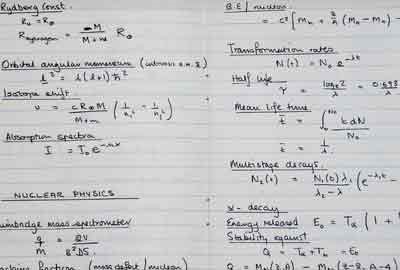 Rydberg Const.
R₀ = R∞
R hydrogen = M / M+m R∞
Orbital angular momentum (intrinsic
l² = l(l+1)ħ²
Isotope shift.
υ = c R∞ M / M+m (1/n₁² − 1/n₂²)
Absorption spectra
I = I₀ e
NUCLEAR PHYSICS
mass spectrometer
q/m =
fraction (mass defect / nucleon)
B.E / nucleon
= c² [ Mn + (MH − Mn) −
Transformation rates
N(t) = N₀ e^−λt
Half life
τ = log_e 2 / λ = 0.693
Mean life time
t̄ = ∫ t dN / N₀
t̄ = 1/λ
Multistage decays.
N₂(t) = N₁(0) λ₁ / λ₂ − λ₁ (e^−λ₁t −
α − decay
Energy released E₀ = Tα (1 +
Stability against
Q = Tα + = E₀
Q =